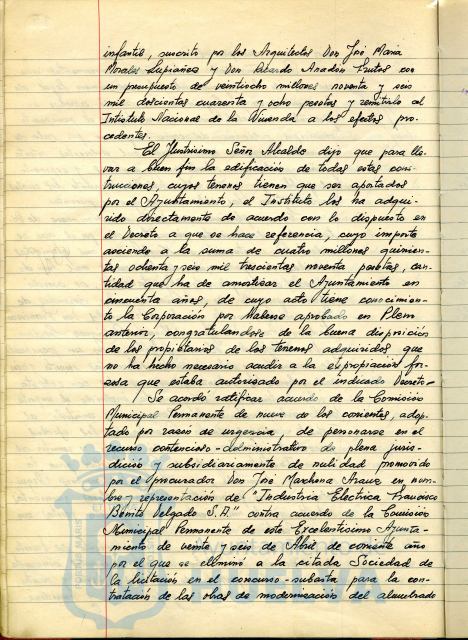 infantil, suscrito por los Arquitectos Don José Maria
Morales Lupiañez y Don Ricardo Anadón Frutos con
un presupuesto de veintiocho millones noventa y seis
mil doscientas cuarenta y ocho pesetas y remitirlo al
Intituto Nacional de la Vivienda a los efectos pro-
cedentes.
El Ilustrisimo Señor Alcalde dijo que para lle-
var a buen fin la edificación de todas estas cons-
trucciones, cuyos terrenos tienen que ser aportados
por el Ayuntamiento, el Instituto los ha adqui-
rido directamente de acuerdo con lo dispuesto en
el Decreto a que se hace referencia, cuyo importe
asciende a la suma de cuatro millones quinien-
tas ochenta y seis mil trescientas noventa pesetas, can-
tidad que ha de amortizar el Ayuntamiento en
cincuenta años, de cuyo acto tiene conocimien-
to la Corporación por haberse aprobado en Pleno
anterior, congratulandose de la buena disposición
de los propietarios de los terrenos adquiridos que
no ha hecho necesario acudir a la expropiación for-
zosa que estaba autorizado por el indicado Decreto.
Se acordó ratificar acuerdo de la Comisión
Municipal Permanente de nueve de los corrientes, adop-
tado por razón de urgencia, de personarse en el
recurso contencioso-administrativo de plena juris-
dicció y subsidiariamente de nulidad promovido
por el procurador Don José Marchena Arauz en nom-
bre y representación de "Industria Electrica Francisco
Benito Delgado S.A." contra acuerdo de la Comisión
Municipal Permanente de este Excelentisimo Ayunta-
miento de veinte y seis de Abril de corriente año
por el que se eliminó a la citada Sociedad de
la licitación en el concurso-subasta para la con-
tratación de las obras de modernización del alumbrado